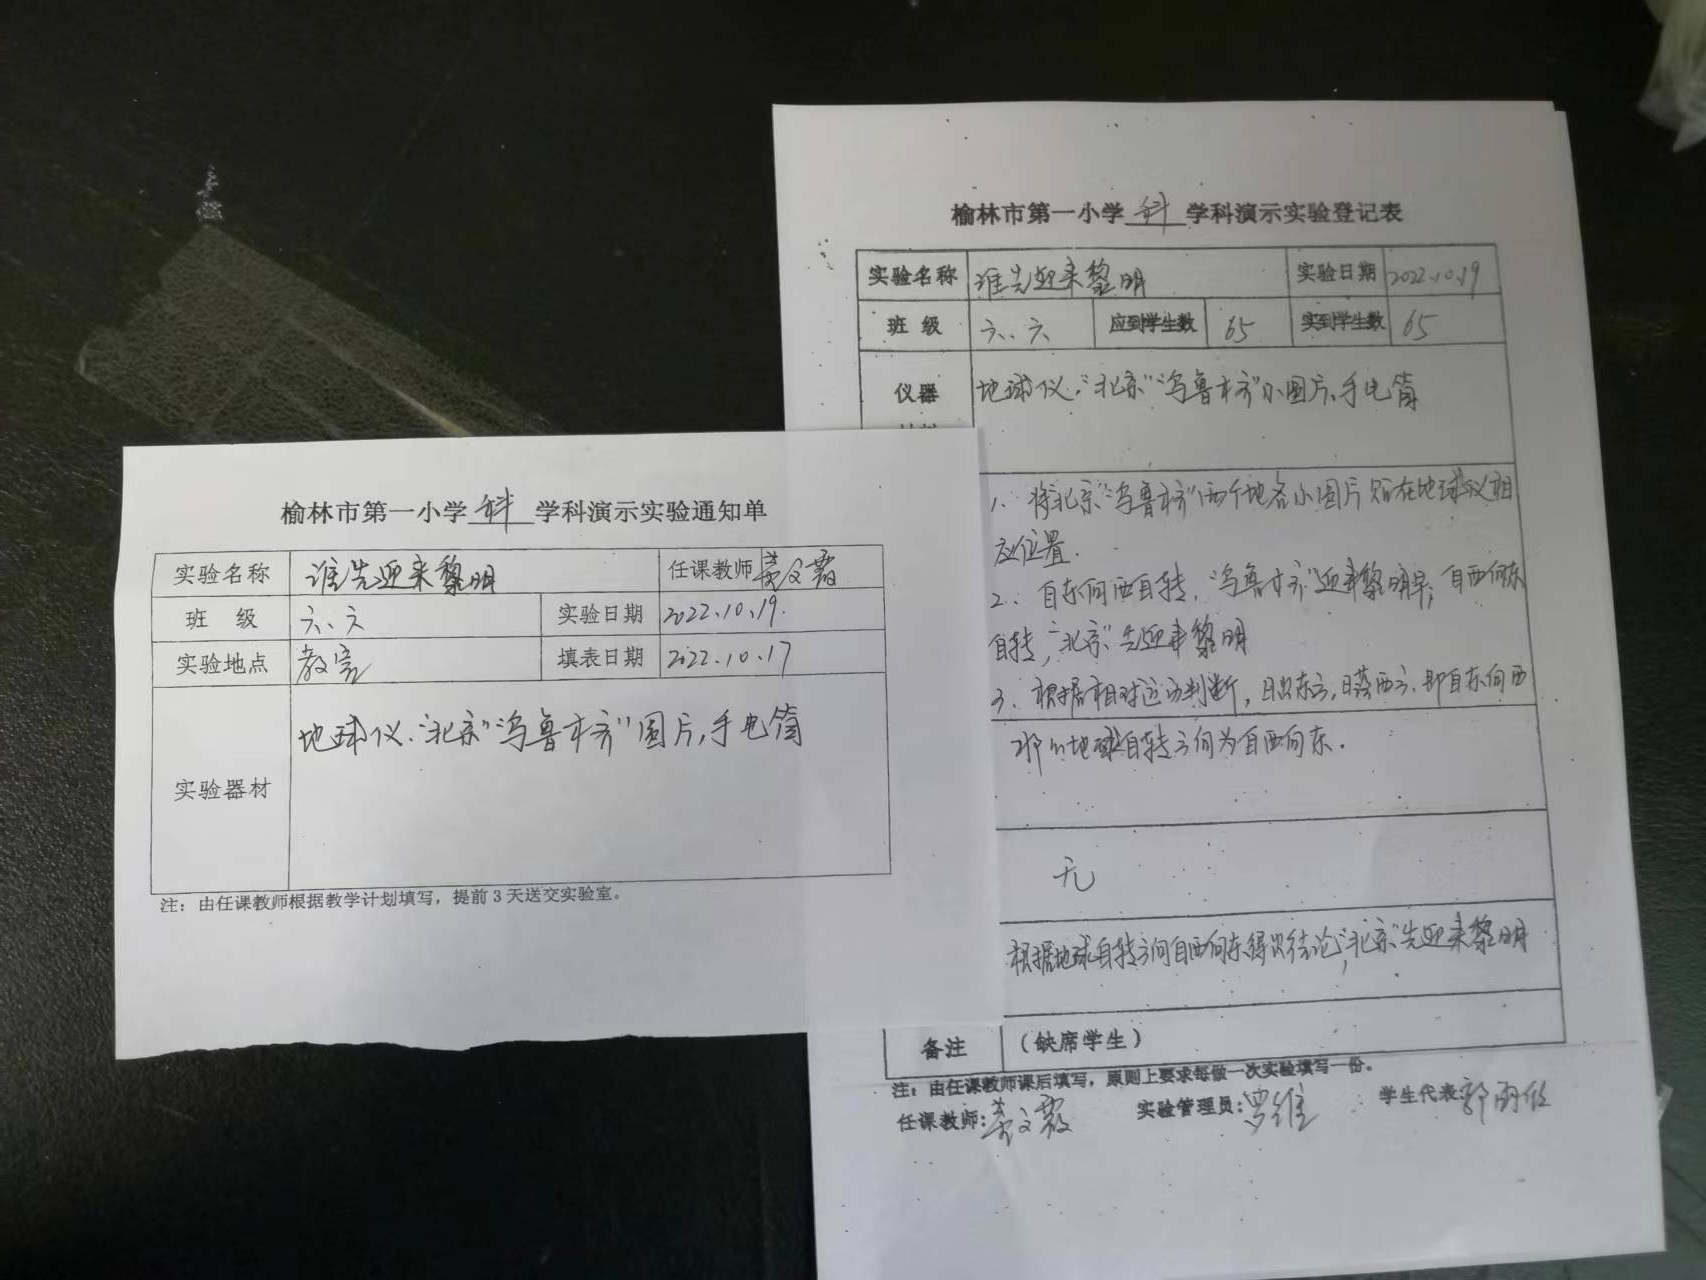 榆林市第一小学 科 学科演示实验通知单
实验名称 谁先迎来黎明 任课教师
班 级 六、六 实验日期 2022.10.19.
实验地点 教室 填表日期 2022.10.17
实验器材 地球仪、"北京""乌鲁木齐"图片,手电筒
注：由任课教师根据教学计划填写，提前3天送交实验室。
榆林市第一小学 科 学科演示实验登记表
实验名称 谁先迎来黎明 实验日期 2022.10.19
班 级 六、六 应到学生数 65 实到学生数 65
仪器 地球仪,"北京""乌鲁木齐"小图片,手电筒
1、将"北京""乌鲁木齐"两个地名小图片贴在地球仪相
应位置.
2、自东向西自转,"乌鲁木齐"迎来黎明早;自西向东
自转,"北京"先迎来黎明
3、根据相对运动判断,日出东方,日落西方.即自东向西
那么地球自转方向为自西向东.
无
根据地球自转方向自西向东得出结论,"北京"先迎来黎明
备注 (缺席学生)
注：由任课教师课后填写，原则上要求每做一次实验填写一份。
任课教师: 实验管理员:罗维 学生代表: